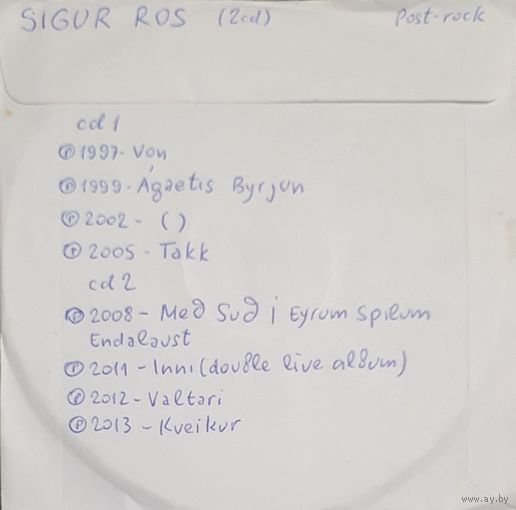 SIGUR ROS (2cd) Post-rock
cd 1
℗ 1997- Von
℗ 1999- Ágaetis Byrjun
℗ 2002 - ( )
℗ 2005 - Takk
cd 2
℗ 2008 - Með Suð i Eyrum Spilum
Endalaust
℗ 2011 - Inni (double live album)
℗ 2012 - Valtari
℗ 2013 - Kveikur
www.ay.by